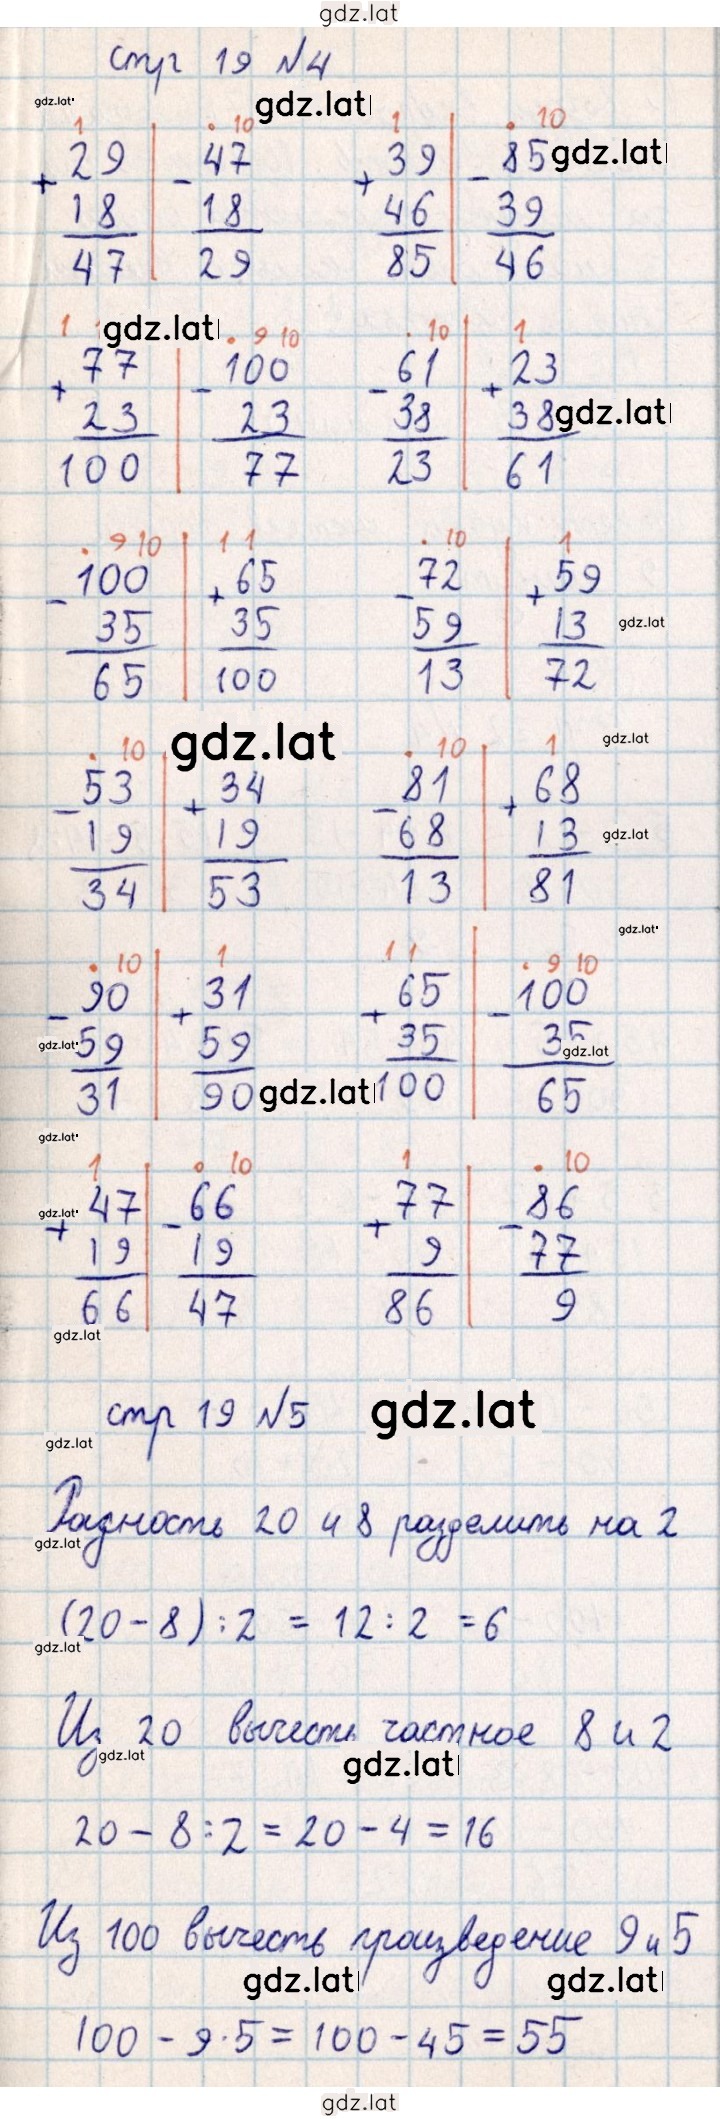 gdz.lat
стр 19 №4
gdz.lat gdz.lat
1 . 10 1 . 10
+ 29 - 47 + 39 - 85 gdz.lat
18 18 46 39
47 29 85 46
1 1 gdz.lat . 9 10 . 10 1
+ 77 - 100 - 61 + 23
23 23 38 38 gdz.lat
100 77 23 61
. 9 10 1 1 . 10 1
- 100 + 65 - 72 + 59
35 35 59 13 gdz.lat
65 100 13 72
. 10 gdz.lat . 10 1 gdz.lat
- 53 + 34 - 81 + 68
19 19 68 13 gdz.lat
34 53 13 81
gdz.lat
. 10 1 1 1 . 9 10
- 90 + 31 + 65 - 100
gdz.lat 59 59 35 35 gdz.lat
31 90 gdz.lat 100 65
gdz.lat
1 . 10 1 . 10
gdz.lat + 47 - 66 + 77 - 86
19 19 9 77
66 47 86 9
gdz.lat
стр 19 №5 gdz.lat
gdz.lat
Разность 20 и 8 разделить на 2
gdz.lat
(20-8):2 = 12:2 =6
gdz.lat
Из 20 вычесть частное 8 и 2
gdz.lat gdz.lat
20-8:2=20-4=16
Из 100 вычесть произведение 9 и 5
gdz.lat gdz.lat
100-9·5=100-45=55
gdz.lat